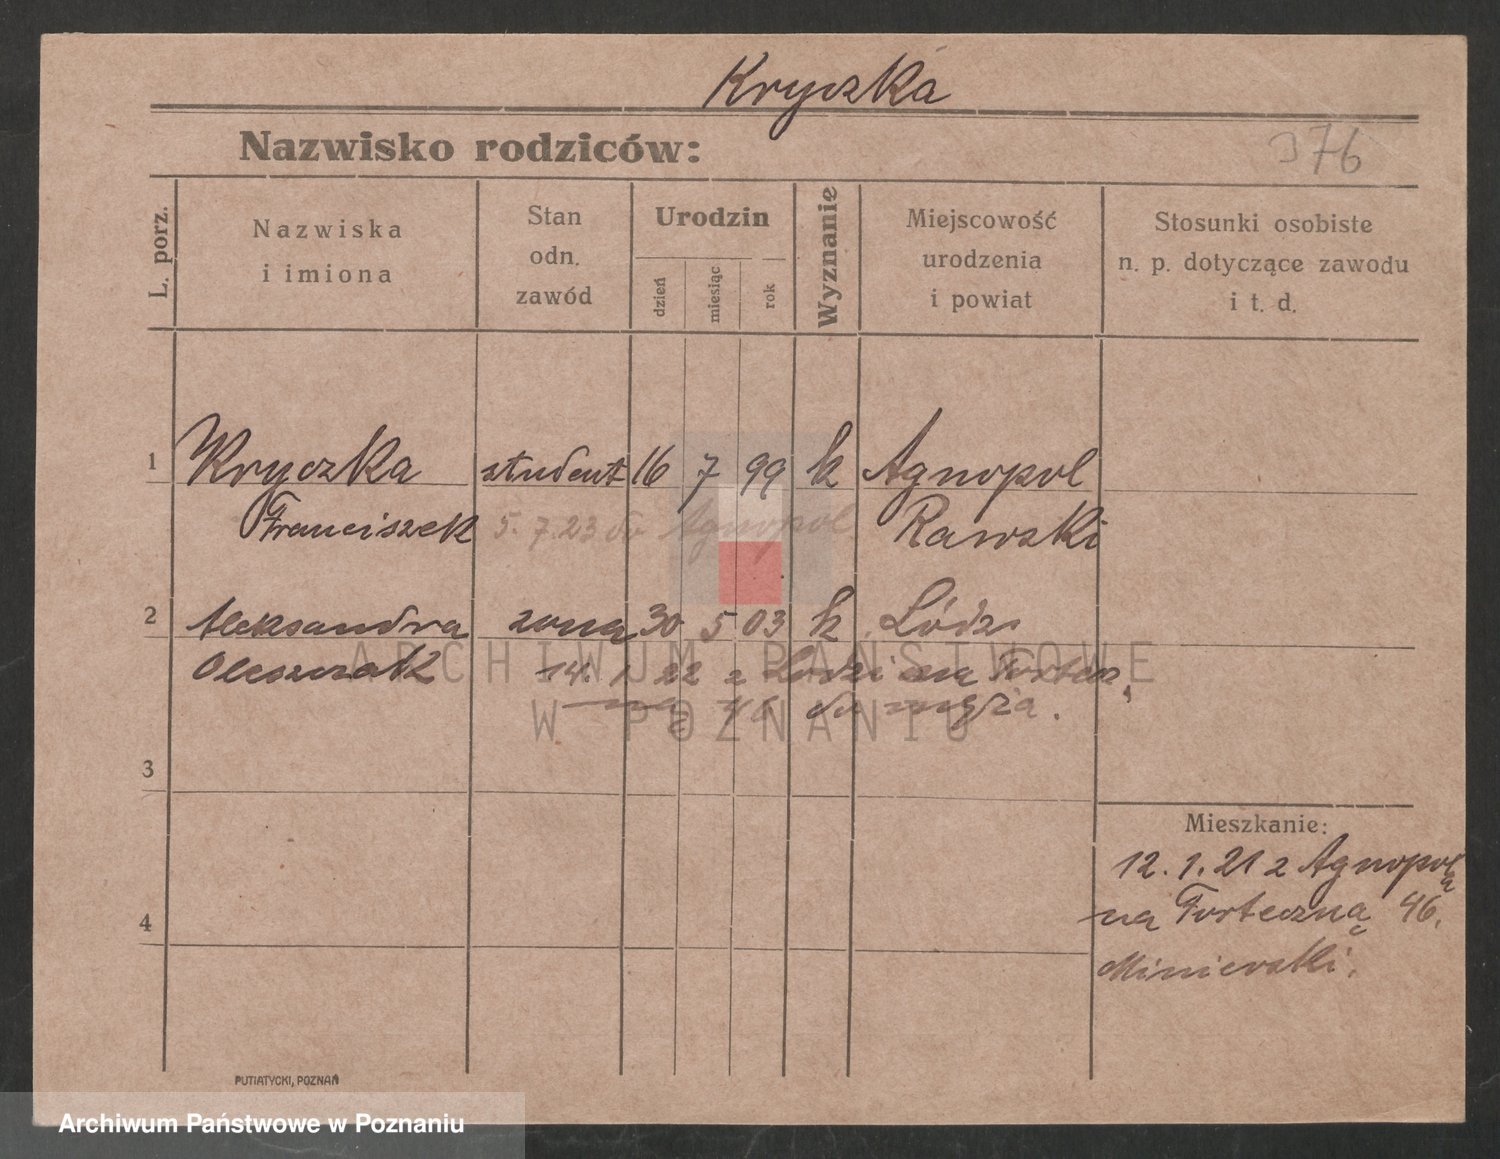 Kryczka
Nazwisko rodziców:
376
L. porz.
Nazwiska
i imiona
Stan
odn.
zawód
Urodzin
dzień
miesiąc
rok
Wyznanie
Miejscowość
urodzenia
i powiat
Stosunki osobiste
n. p. dotyczące zawodu
i t. d.
1 Kryczka student 16 7 99 k Agnopol
Franciszek 5. 7. 23 do Agnopol Rawski
2 Aleksandra żona 30 5 03 k Łódź
Oleszczak 14. 1 22 z Łodzi na Fortecz
ną 46 do męża.
ARCHIWUM PAŃSTWOWE
W POZNANIU
3
Mieszkanie:
12. 1. 21 z Agnopola
na Forteczną 46.
4
PUTIATYCKI, POZNAŃ
Archiwum Państwowe w Poznaniu